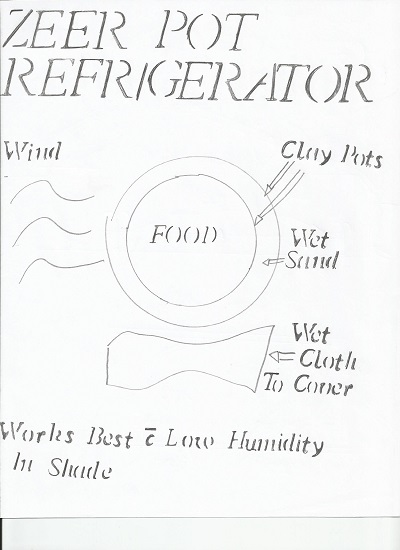 ZEER POT
REFRIGERATOR
Wind
Clay Pots
FOOD
Wet
Sand
Wet
Cloth
To Cover
Works Best c̄ Low Humidity
In Shade